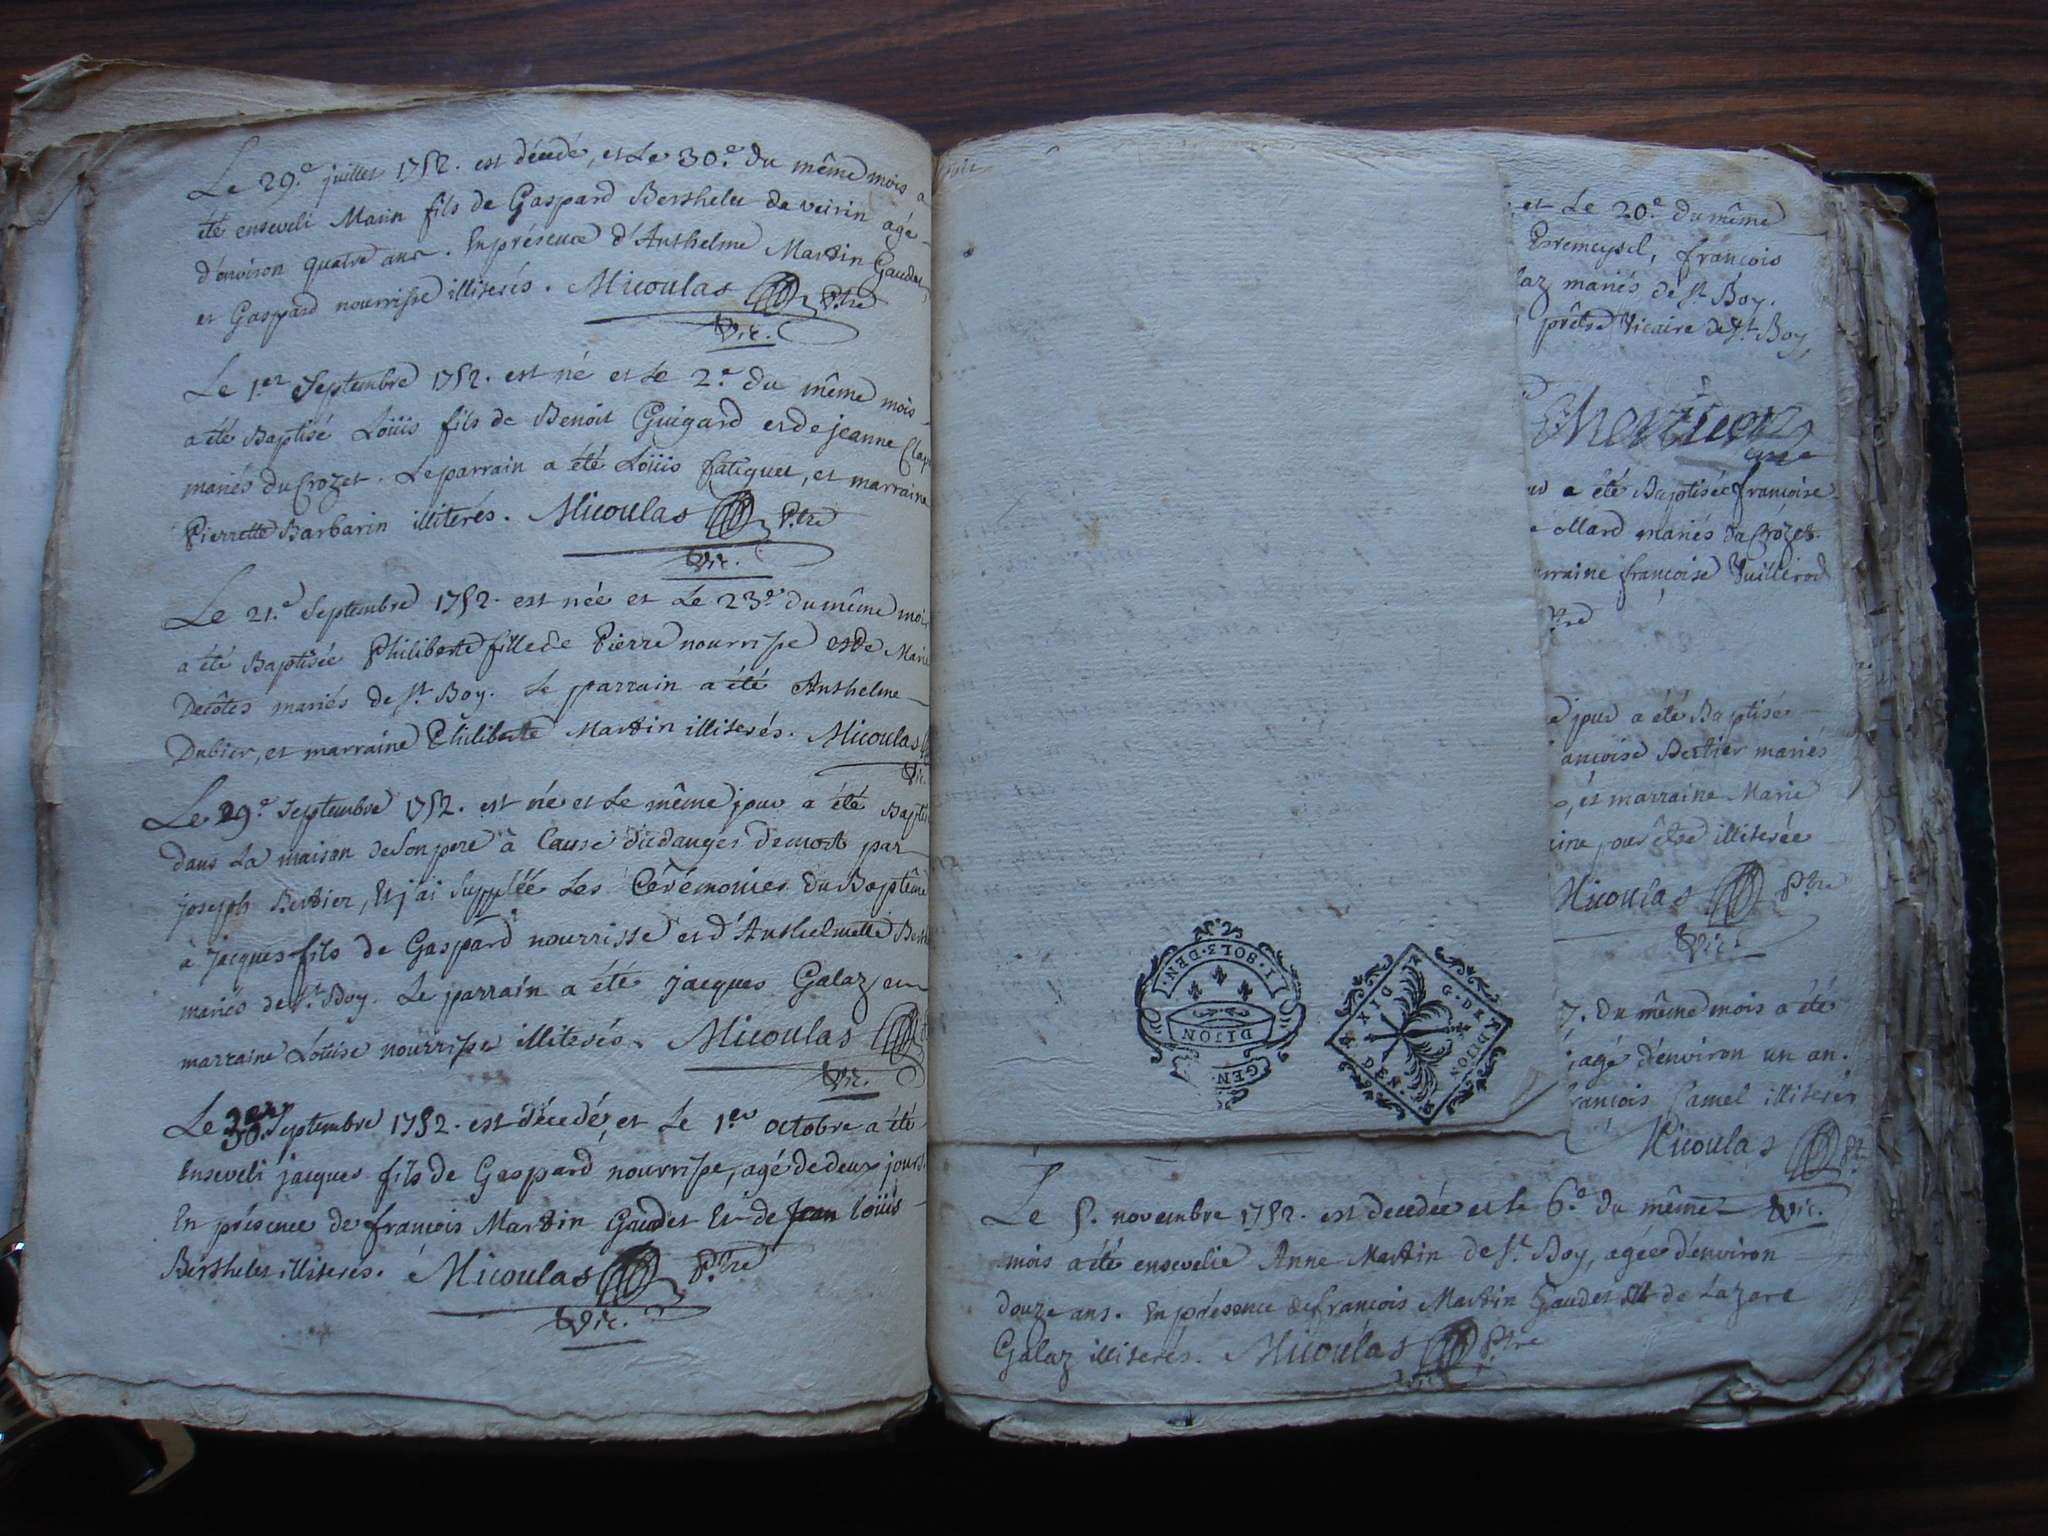 Le 29.e juillet 1752. est décédé, et Le 30.e du même mois a
été enseveli Marin fils de Gaspard Berthelet de veirin agé
d'environ quatre ans. En présence d'Anthelme Martin Gaudet,
et Gaspard nourrisse illiterés. Micoulas P.tre
Vic.
Le 1.er Septembre 1752. est né et Le 2.e du même mois
a été Baptisé Loüis fils de Benoit Guigard et de jeanne Clap
mariés du Crozet. Le parrain a été Loüis fatiguet, et marraine
Pierrette Barbarin illiterés. Micoulas P.tre
Vic.
Le 21.e Septembre 1752. est née et Le 23.e du même mois
a été Baptisée Philiberte fille de Pierre nourrisse et de Marie
Decôtes mariés de St. Boy. Le parrain a été Anthelme
Dubier, et marraine Philiberte Martin illiterés. Micoulas
Vic.
Le 29.e Septembre 1752. est né et Le même jour a été Bapti
dans La maison de Son pere à Cause du danger de mort par
joseph Bertier, Et j'ai Supplée Les Cérémonies du Baptême
à jacques fils de Gaspard nourrisse et d'Anthelmette Berth
mariés de St. Boy. Le parrain a été jacques Galaz et
marraine Loüise nourrisse illiterés. Micoulas
Vic.
Le 30. Septembre 1752. est décédé, et Le 1.er octobre a été
Enseveli jacques fils de Gaspard nourrisse, agé de deux jours.
En présence de françois Martin Gaudet Et de Jean Loüis
Berthelet illiterés. Micoulas P.tre
Vic.
et Le 20.e du même
Premeysel, françois
laz mariés de St. Boy.
prêtre Vicaire de St. Boy,
a été Baptisée françoise
ollard mariés du Crózet.
arraine françoise Vuillerod
tre
jour a été Baptisé
ançoise Bertier mariés
et marraine Marie
pour être illiterée
Micoulas P.tre
Vic.
7. du même mois a été
agé d'environ un an.
françois Camel illiterés
Micoulas P.tre
Vic.
I·SOLS·DEN·
DIJON
GEN·
G·DE·DIJON
DEN·
Le 5. novembre 1752. est decedée et le 6.e du même
mois a été ensevelie Anne Martin de St. Boy, agée d'environ
douze ans. En présence de françois Martin Gaudet Et de Lazare
Galaz illiterés. Micoulas P.tre
Vic